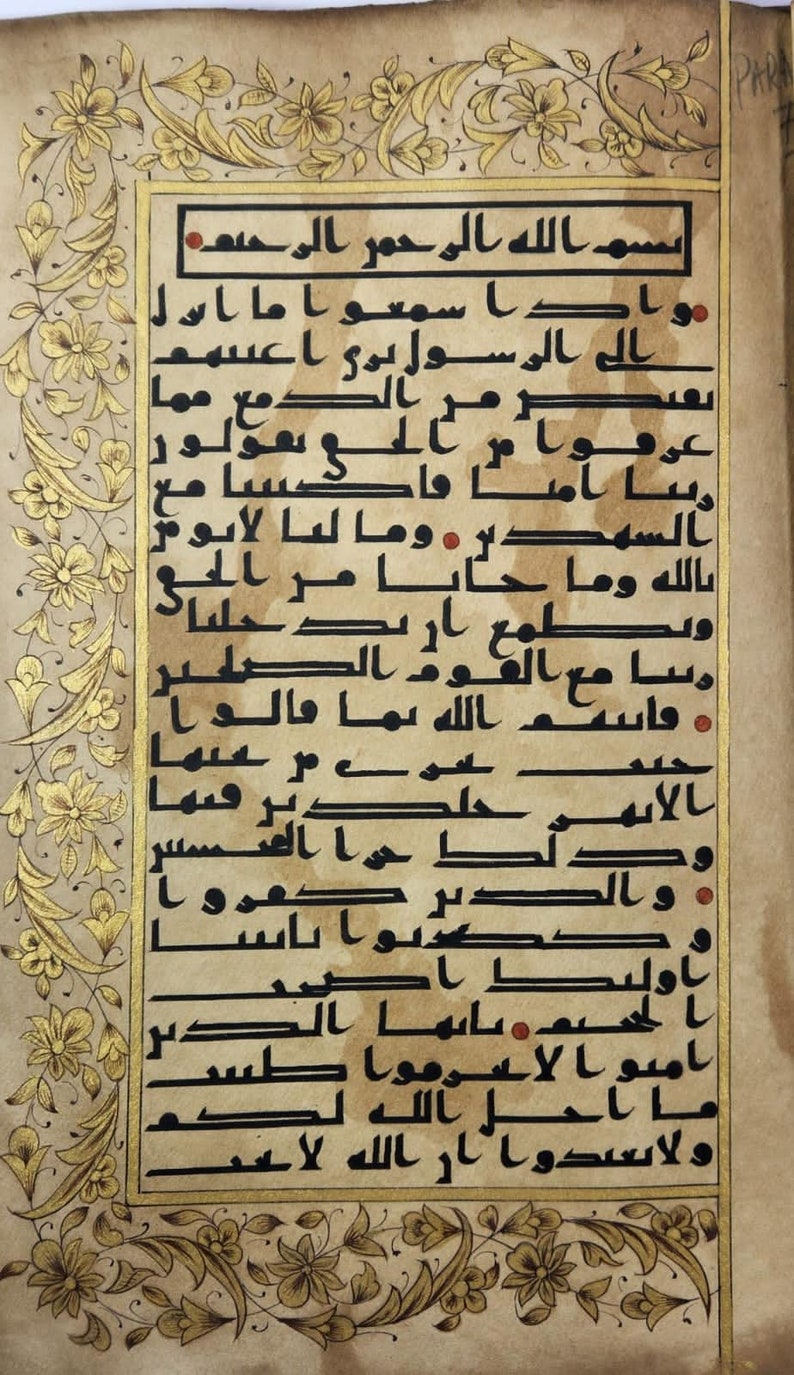 PARA
7
بسم الله الرحمن الرحيم
واذا سمعوا ما انزل
الى الرسول ترى اعينهم
تفيض من الدمع مما
عرفوا من الحق يقولون
ربنا امنا فاكتبنا مع
الشهدين وما لنا لا نومن
بالله وما جانا من الحق
ونطمع ان يدخلنا
ربنا مع القوم الصلحين
فاثبهم الله بما قالوا
جنت تجري من تحتها
الانهر خلدين فيها
وذلك جزا المحسنين
والذين كفروا
وكذبوا بايتنا
اوليك اصحب
الجحيم يايها الذين
امنوا لا تحرموا طيبت
ما احل الله لكم
ولا تعتدوا ان الله لا يحب